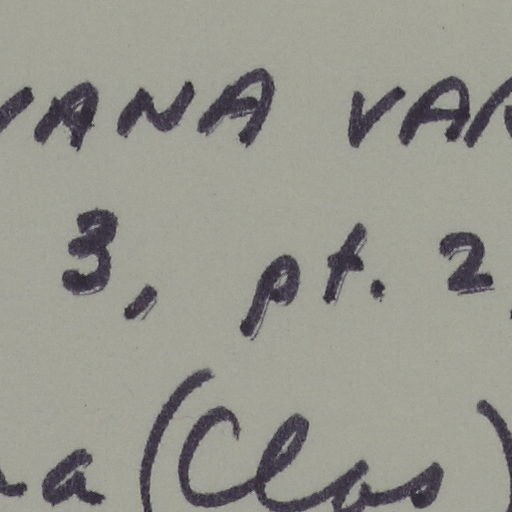 VANA VAR
3, pt. 2
a (Clos)